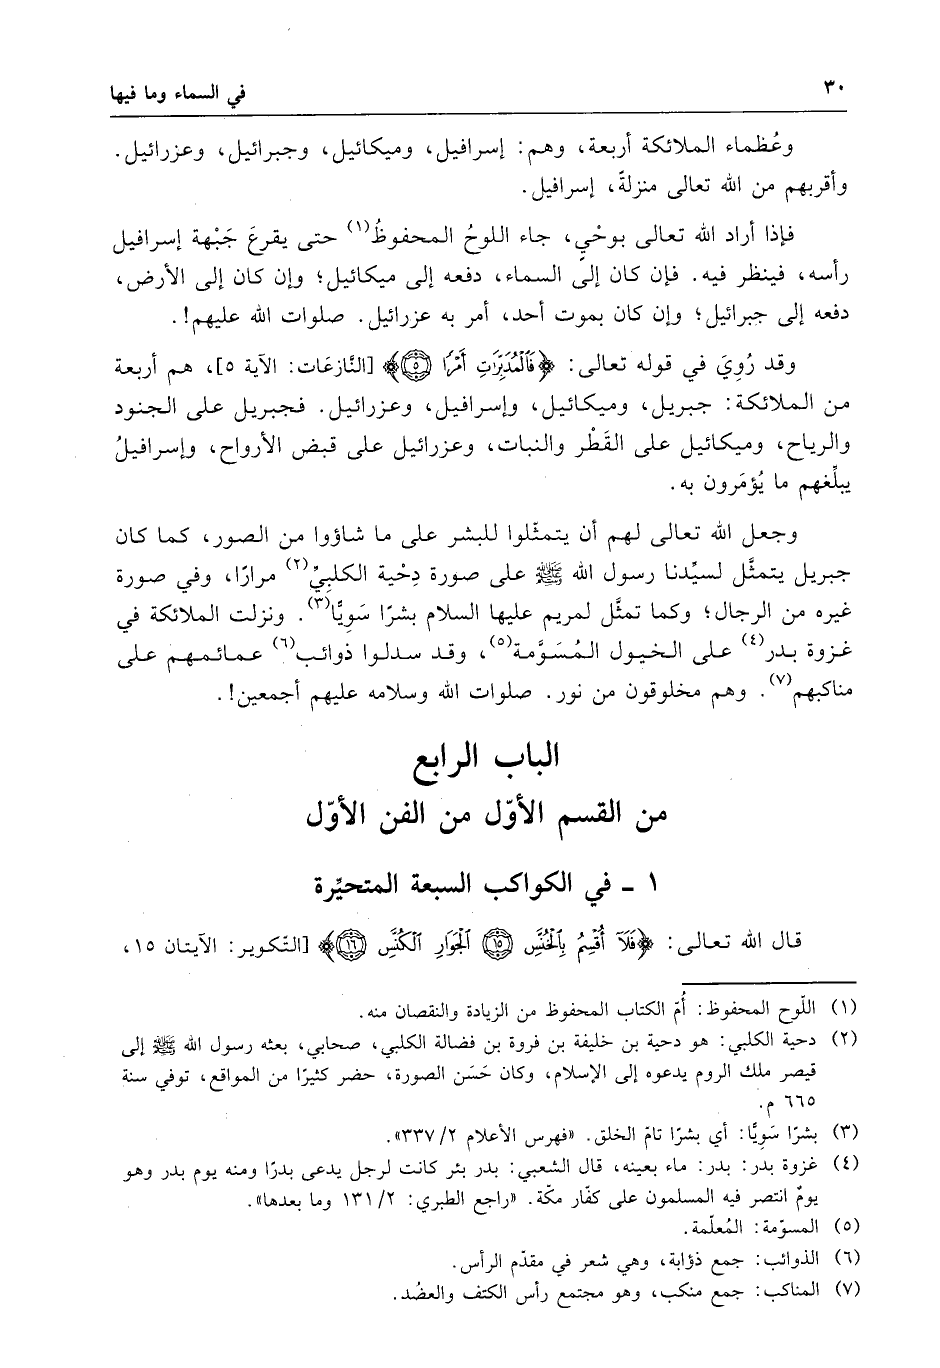 ٣٠
في السماء وما فيها
وعُظماء الملائكة أربعة، وهم: إسرافيل، وميكائيل، وجبرائيل، وعزرائيل.
وأقربهم من الله تعالى منزلةً، إسرافيل.
فإذا أراد الله تعالى بوحْيٍ، جاء اللوحُ المحفوظُ(١) حتى يقرعَ جَبْهة إسرافيل
رأسه، فينظر فيه. فإن كان إلى السماء، دفعه إلى ميكائيل؛ وإن كان إلى الأرض،
دفعه إلى جبرائيل؛ وإن كان بموت أحد، أمر به عزرائيل. صلوات الله عليهم!.
وقد رُوِيَ في قوله تعالى: ﴿فَٱلْمُدَبِّرَٰتِ أَمْرًا ۝٥﴾ [النَّازعَات: الآية ٥]، هم أربعة
من الملائكة: جبريل، وميكائيل، وإسرافيل، وعزرائيل. فجبريل على الجنود
والرياح، وميكائيل على القَطْر والنبات، وعزرائيل على قبض الأرواح، وإسرافيلُ
يبلِّغهم ما يُؤمَرون به.
وجعل الله تعالى لهم أن يتمثّلوا للبشر على ما شاؤوا من الصور، كما كان
جبريل يتمثَّل لسيِّدنا رسول الله ﷺ على صورة دِحْية الكلبيّ(٢) مرارًا، وفي صورة
غيره من الرجال؛ وكما تمثَّل لمريم عليها السلام بشرًا سَوِيًّا(٣). ونزلت الملائكة في
غزوة بدر(٤) على الخيول المُسَوَّمة(٥)، وقد سدلوا ذوائب(٦) عمائمهم على
مناكبهم(٧). وهم مخلوقون من نور. صلوات الله وسلامه عليهم أجمعين!.
الباب الرابع
من القسم الأوّل من الفن الأوّل
١ ـ في الكواكب السبعة المتحيِّرة
قال الله تعالى: ﴿فَلَآ أُقْسِمُ بِٱلْخُنَّسِ ۝١٥ ٱلْجَوَارِ ٱلْكُنَّسِ ۝١٦﴾ [التّكوير: الآيتان ١٥،
(١) اللّوح المحفوظ: أُمّ الكتاب المحفوظ من الزيادة والنقصان منه.
(٢) دحية الكلبي: هو دحية بن خليفة بن فروة بن فضالة الكلبي، صحابي، بعثه رسول الله ﷺ إلى
قيصر ملك الروم يدعوه إلى الإسلام، وكان حَسَن الصورة، حضر كثيرًا من المواقع، توفي سنة
٦٦٥ م.
(٣) بشرًا سَوِيًّا: أي بشرًا تامّ الخلق. «فهرس الأعلام ٣٣٧/٢».
(٤) غزوة بدر: بدر: ماء بعينه، قال الشعبي: بدر بئر كانت لرجل يدعى بدرًا ومنه يوم بدر وهو
يومٌ انتصر فيه المسلمون على كفّار مكّة. «راجع الطبري: ١٣١/٢ وما بعدها».
(٥) المسوّمة: المُعلّمة.
(٦) الذوائب: جمع ذؤابة، وهي شعر في مقدّم الرأس.
(٧) المناكب: جمع منكب، وهو مجتمع رأس الكتف والعضُد.